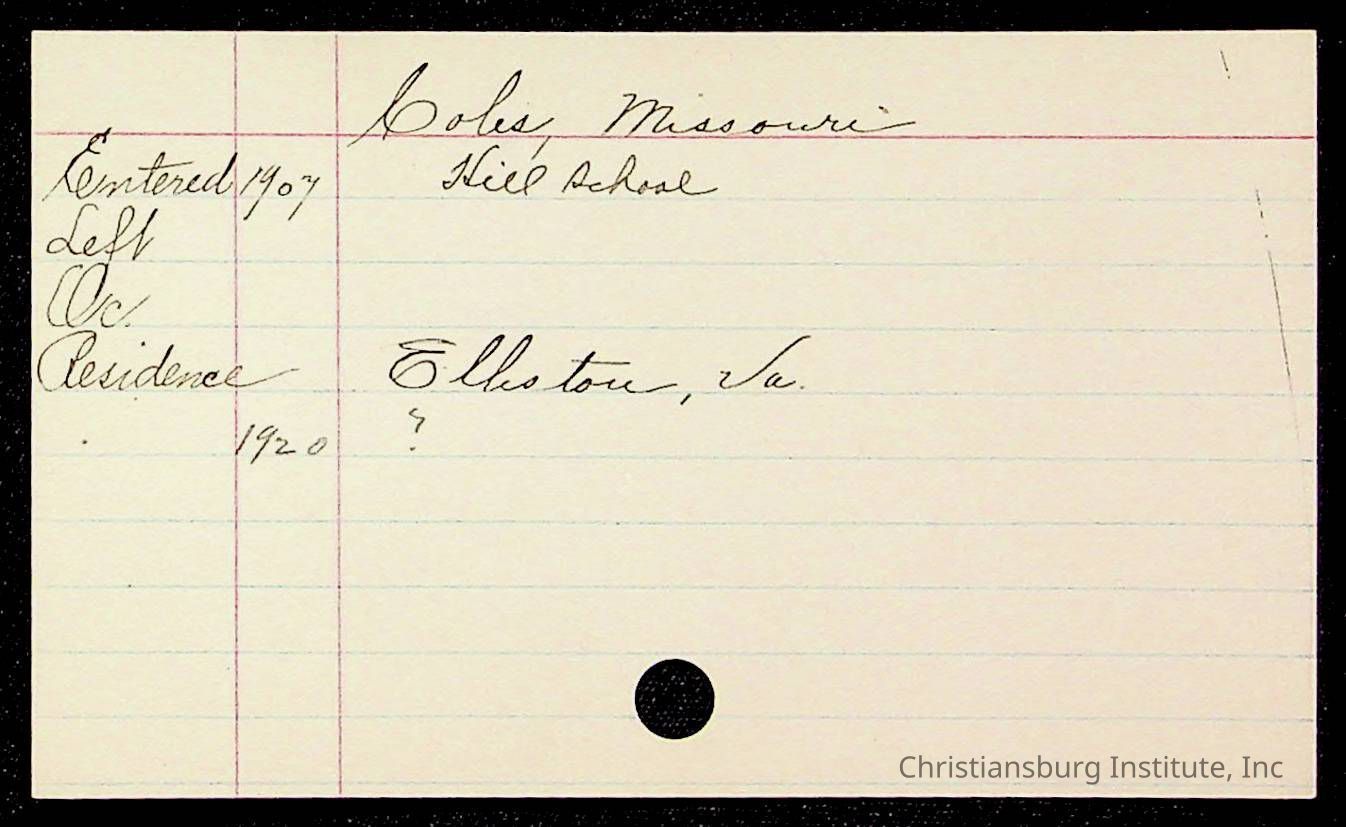 Coles, Missouri
Entered 1907 Hill School
Left
Oc.
Residence Elliston, Va.
1920 ?
Christiansburg Institute, Inc